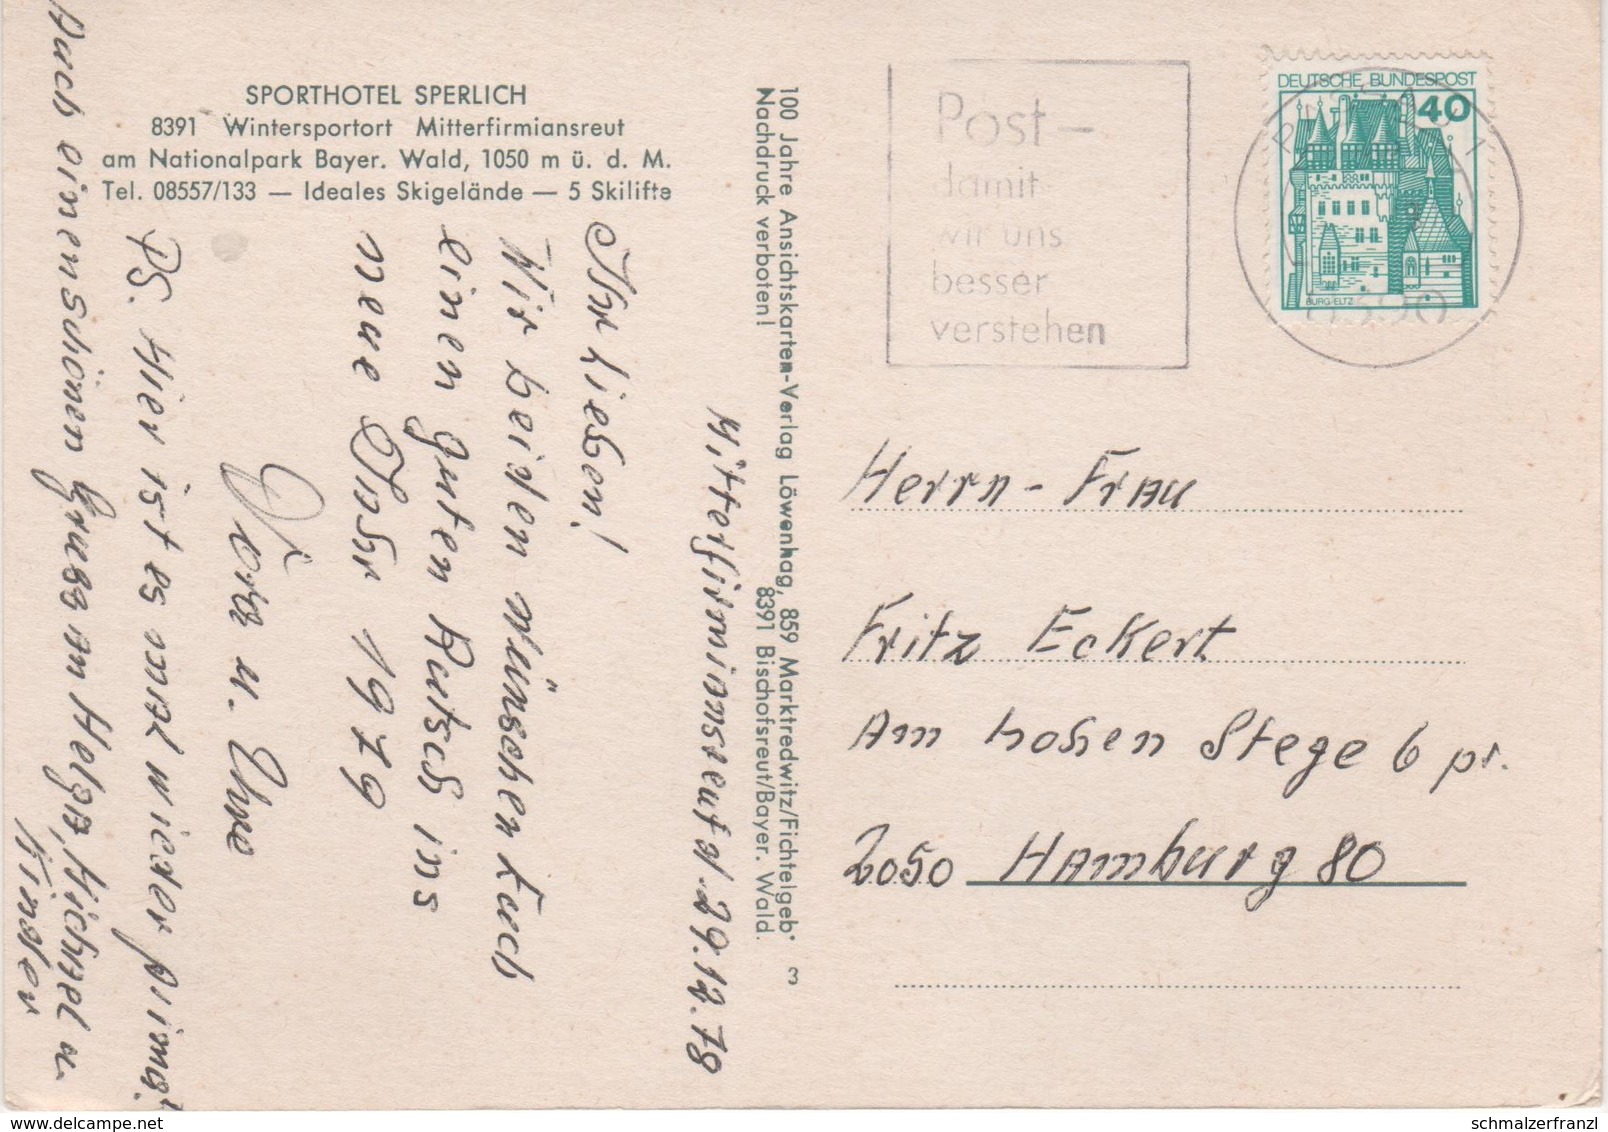 SPORTHOTEL SPERLICH
8391 Wintersportort Mitterfirmiansreut
am Nationalpark Bayer. Wald, 1050 m ü. d. M.
Tel. 08557/133 — Ideales Skigelände — 5 Skilifte
Mitterfirmiansreut d. 29.12.78
Ihr Lieben!
Wir beiden wünschen Euch
einen guten Rutsch ins
neue Jahr 1979
u. Uwe
PS. Hier ist es mal wieder prima!
Auch einen schönen Gruss an Helga, Michael u.
Kinder
100 Jahre Ansichtskarten-Verlag Löwenhag, 859 Marktredwitz/Fichtelgeb.
Nachdruck verboten!
8391 Bischofsreut/Bayer. Wald.
3
Post —
damit
wir uns
besser
verstehen
DEUTSCHE BUNDESPOST
40
BURG ELTZ
PASSAU 1
8390
Herrn - Frau
Fritz Eckert
Am hohen Stege 6 pr.
2050 Hamburg 80
www.delcampe.net
schmalzerfranzl